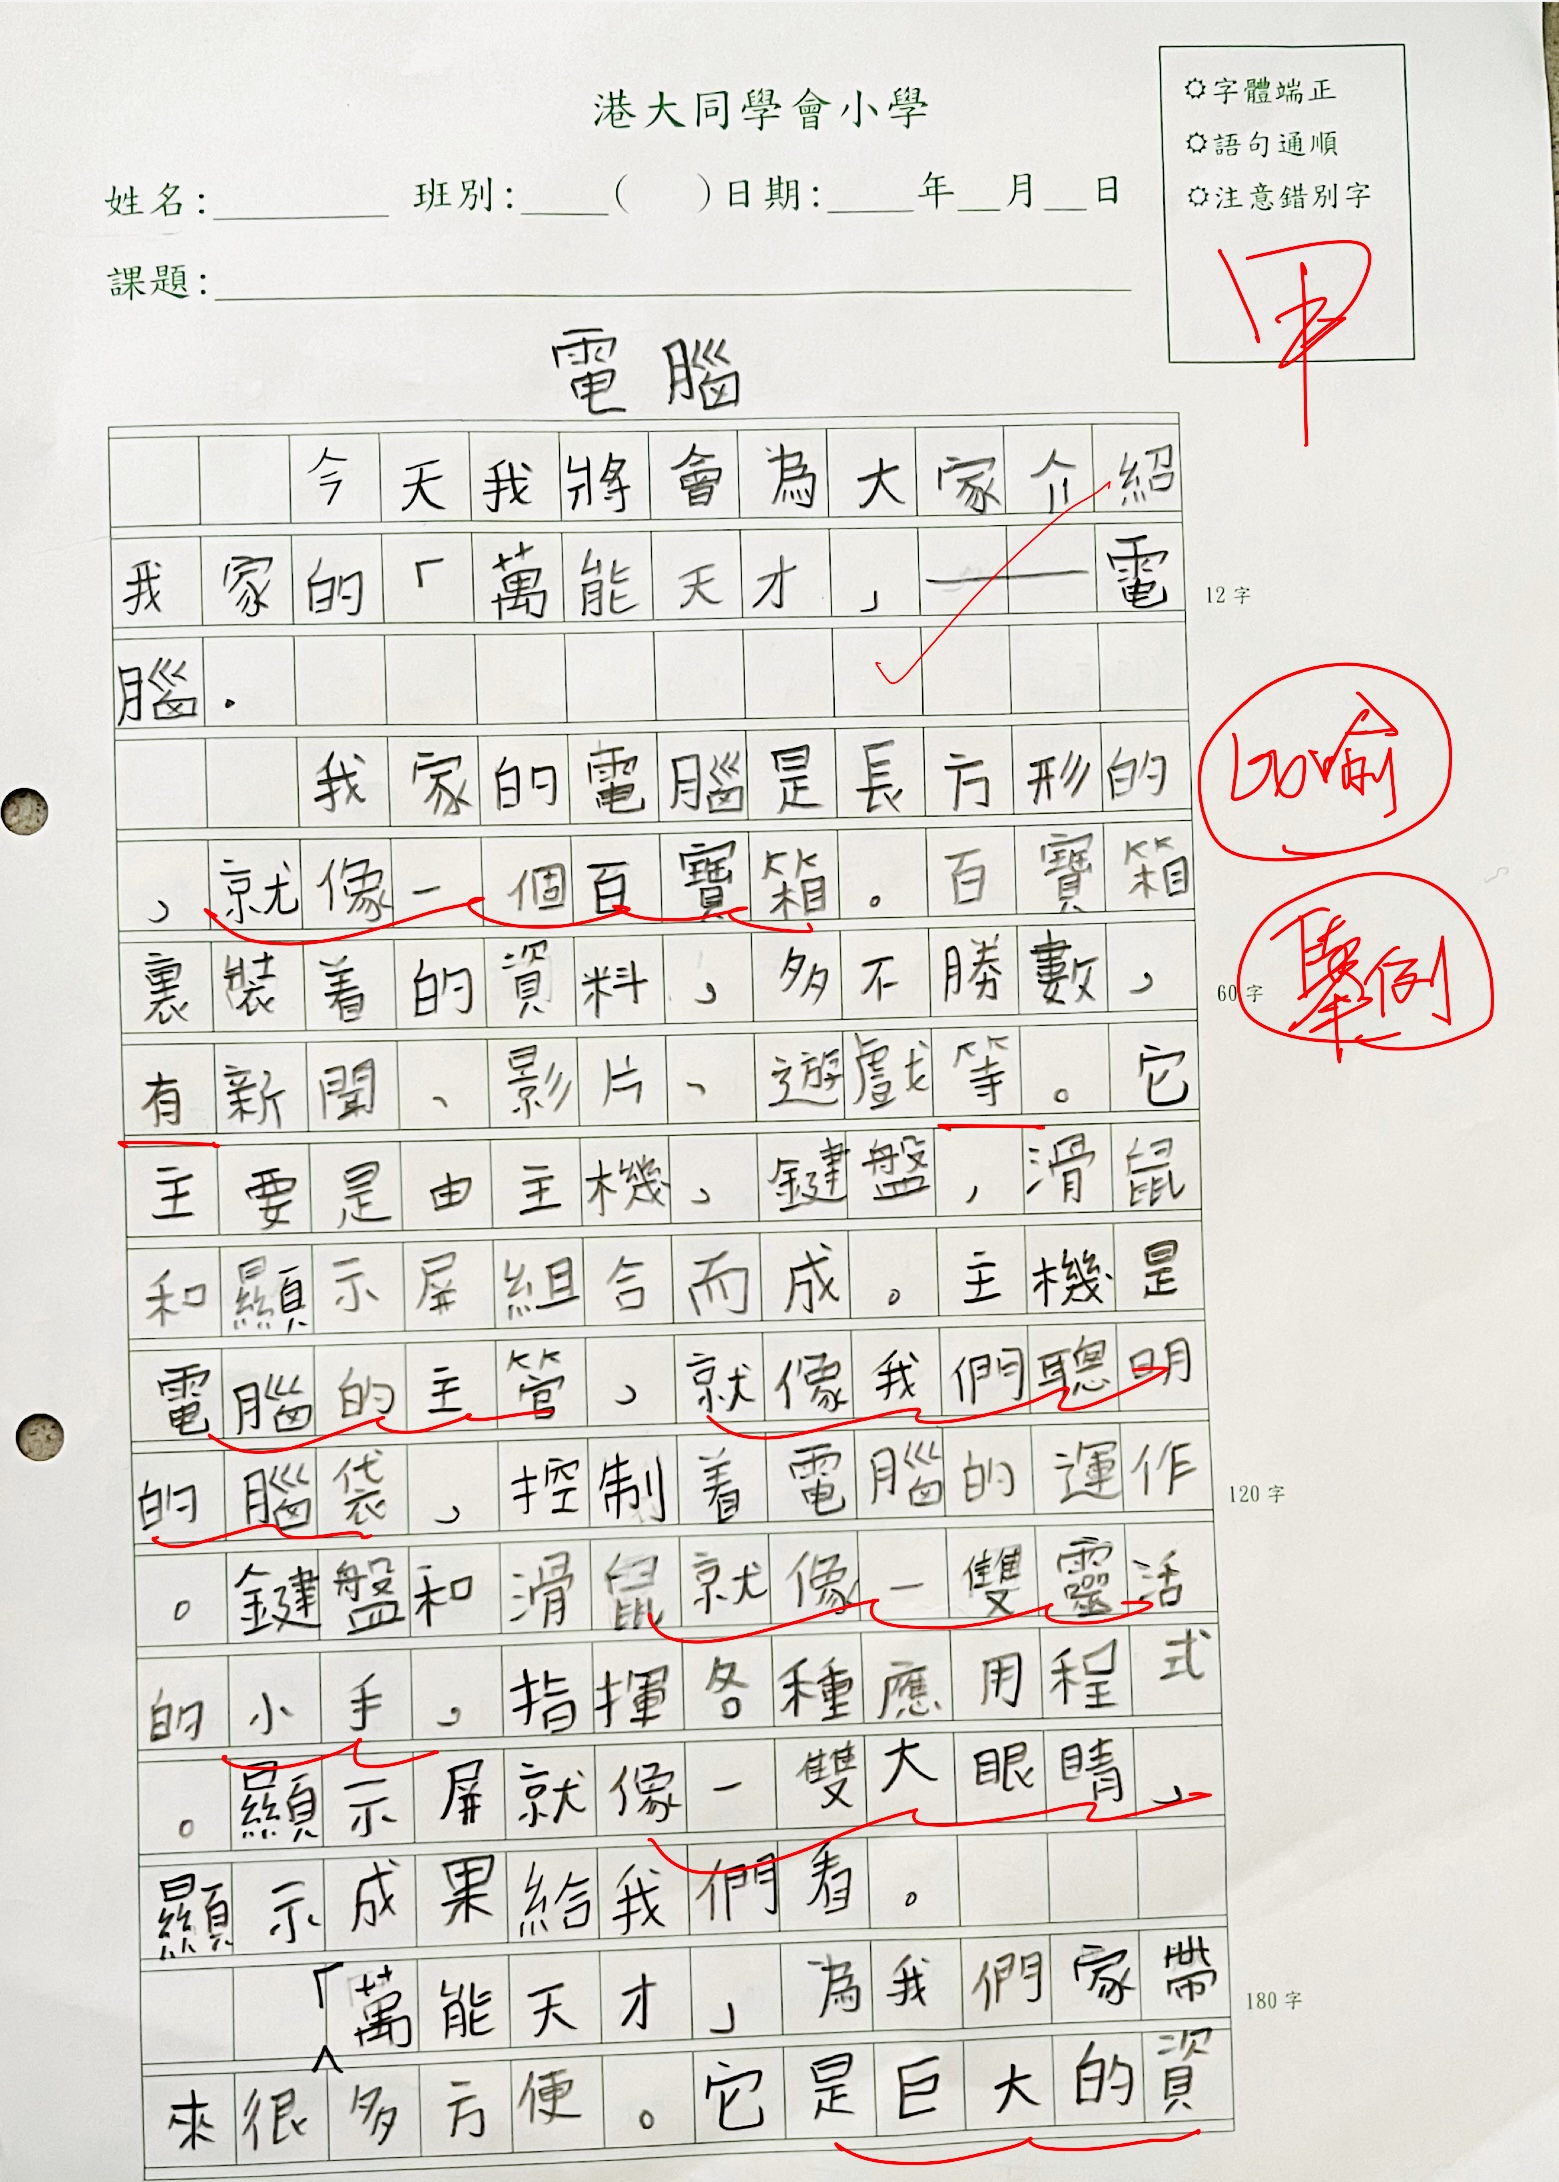 港大同學會小學
姓名： 班別： （ ）日期： 年 月 日
課題：
☼字體端正
☼語句通順
☼注意錯別字
甲
電腦
今天我將會為大家介紹
我家的「萬能天才」——電
12字
腦。
我家的電腦是長方形的
比喻
，就像一個百寶箱。百寶箱
裏裝着的資料，多不勝數，
60字
舉例
有新聞、影片、遊戲等。它
主要是由主機、鍵盤，滑鼠
和顯示屏組合而成。主機是
電腦的主管，就像我們聰明
的腦袋，控制着電腦的運作
120字
。鍵盤和滑鼠就像一雙靈活
的小手，指揮各種應用程式
。顯示屏就像一雙大眼睛，
顯示成果給我們看。
「萬能天才」為我們家帶
180字
來很多方便。它是巨大的資